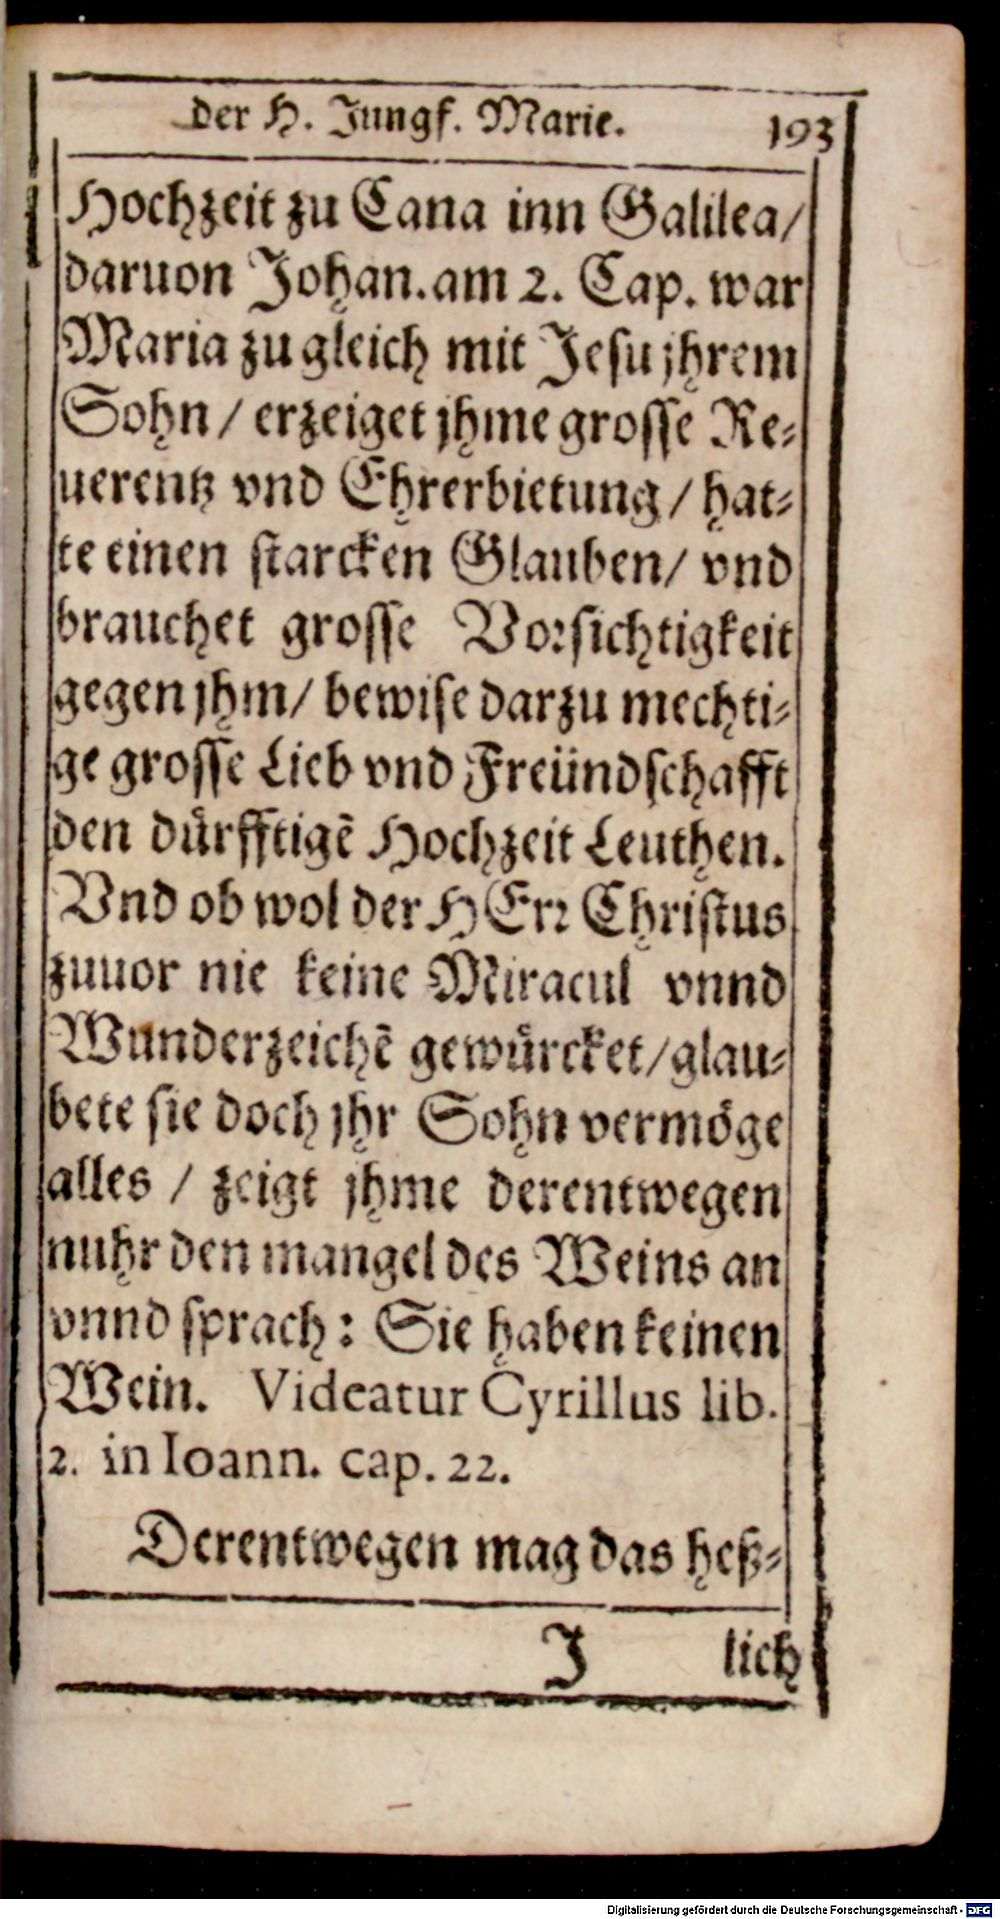 der H. Jungf. Marie. 193
Hochzeit zu Cana inn Galilea/
daruon Johan. am 2. Cap. war
Maria zu gleich mit Jesu jhrem
Sohn / erzeiget jhme grosse Re-
uerentz vnd Ehrerbietung / hat-
te einen starcken Glauben / vnd
brauchet grosse Vorsichtigkeit
gegen jhm / bewise darzu mechti-
ge grosse Lieb vnd Freündschafft
den dürfftigē Hochzeit Leuthen.
Vnd ob wol der HErr Christus
zuuor nie keine Miracul vnnd
Wunderzeichē gewürcket / glau-
bete sie doch jhr Sohn vermöge
alles / zeigt jhme derentwegen
nuhr den mangel des Weins an
vnnd sprach: Sie haben keinen
Wein. Videatur Cyrillus lib.
2. in Ioann. cap. 22.
Derentwegen mag das heß-
J lich
Digitalisierung gefördert durch die Deutsche Forschungsgemeinschaft - DFG